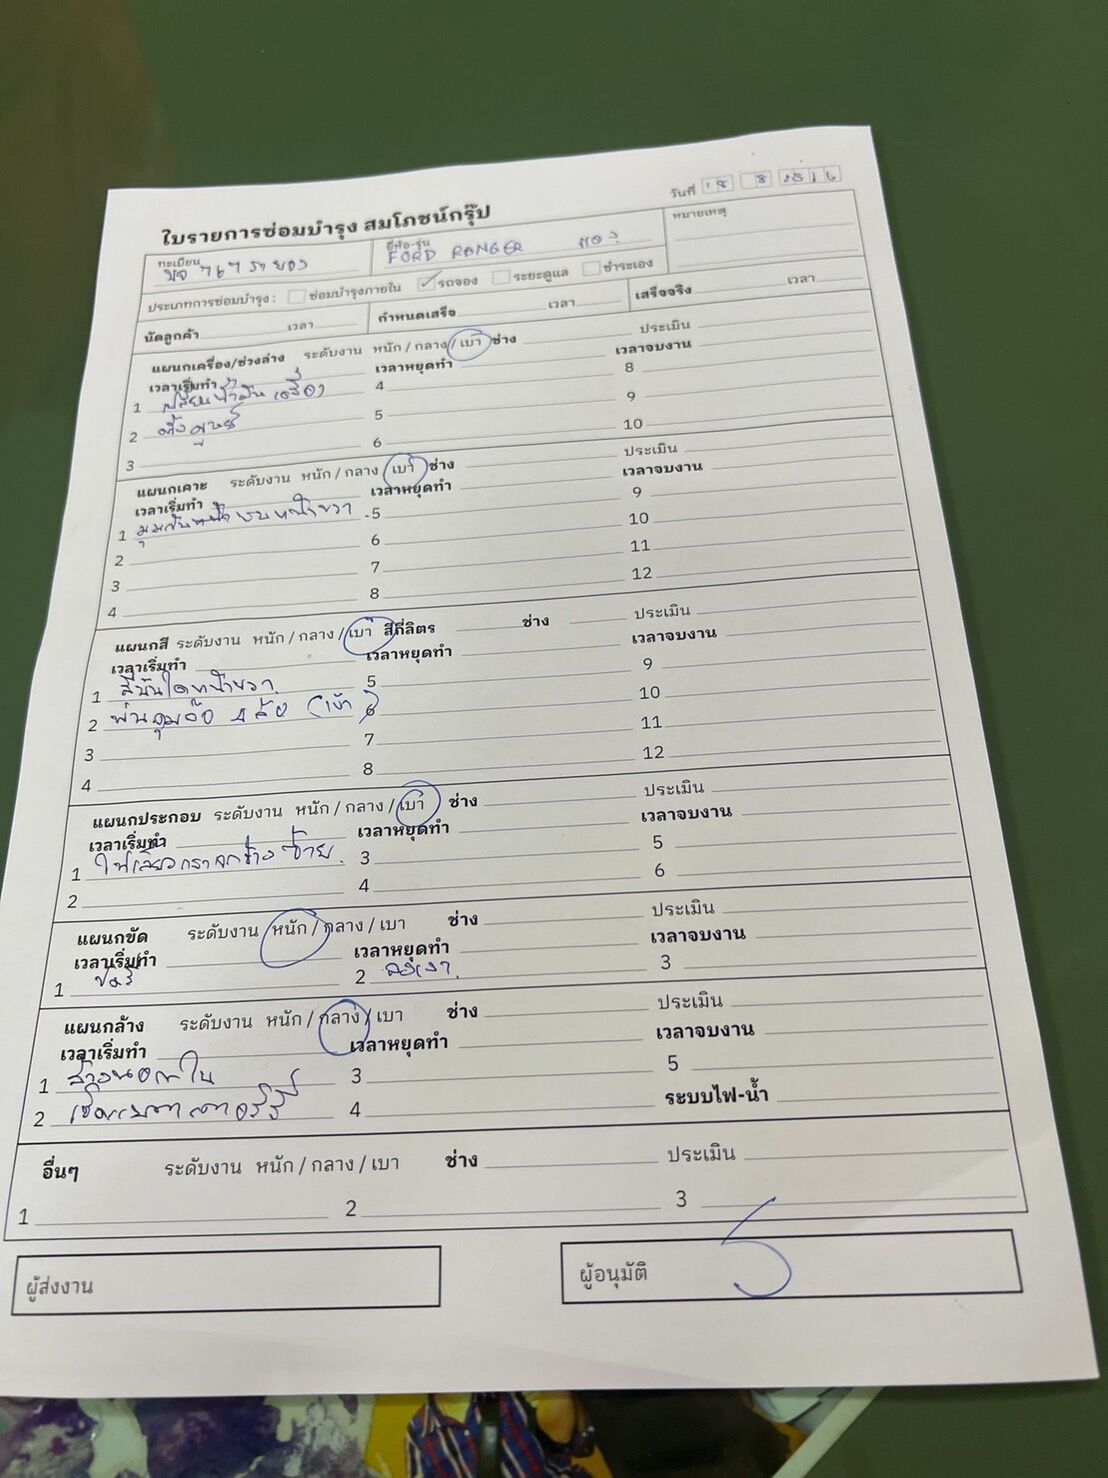 ใบรายการซ่อมบำรุง สมโภชน์กรุ๊ป
วันที่ 18 8
ทะเบียน ระยอง
ยี่ห้อ-รุ่น FORD RANGER แดง
หมายเหตุ
ประเภทการซ่อมบำรุง : ซ่อมบำรุงภายใน ✓ รถจอง ระยะดูแล ชำระเอง
นัดลูกค้า เวลา กำหนดเสร็จ เวลา เสร็จจริง เวลา
แผนกเครื่อง/ช่วงล่าง ระดับงาน หนัก / กลาง / เบา ช่าง ประเมิน
เวลาเริ่มทำ เวลาหยุดทำ เวลาจบงาน
1 เปลี่ยนน้ำมันเครื่อง 4 8
2 ตั้งศูนย์ 5 9
3 6 10
แผนกเคาะ ระดับงาน หนัก / กลาง / เบา ช่าง ประเมิน
เวลาเริ่มทำ เวลาหยุดทำ เวลาจบงาน
1 มุมกันชนหน้าขวา 5 9
2 6 10
3 7 11
4 8 12
แผนกสี ระดับงาน หนัก / กลาง / เบา สีกี่ลิตร ช่าง ประเมิน
เวลาเริ่มทำ เวลาหยุดทำ เวลาจบงาน
1 สีบันไดหน้าขวา 5 9
2 พ่นดุมล้อ 4 ล้อ (เงา) 6 10
3 7 11
4 8 12
แผนกประกอบ ระดับงาน หนัก / กลาง / เบา ช่าง ประเมิน
เวลาเริ่มทำ เวลาหยุดทำ เวลาจบงาน
1 ไฟเลี้ยวกระจกข้าง ซ้าย 3 5
2 4 6
แผนกขัด ระดับงาน หนัก / กลาง / เบา ช่าง ประเมิน
เวลาเริ่มทำ เวลาหยุดทำ เวลาจบงาน
1 ขัดสี 2 ลงเงา 3
แผนกล้าง ระดับงาน หนัก / กลาง / เบา ช่าง ประเมิน
เวลาเริ่มทำ เวลาหยุดทำ เวลาจบงาน
1 ล้างนอกใน 3 5
2 เช็คแบตเตอรี่ 4 ระบบไฟ-น้ำ
อื่นๆ ระดับงาน หนัก / กลาง / เบา ช่าง ประเมิน
1 2 3
ผู้ส่งงาน ผู้อนุมัติ